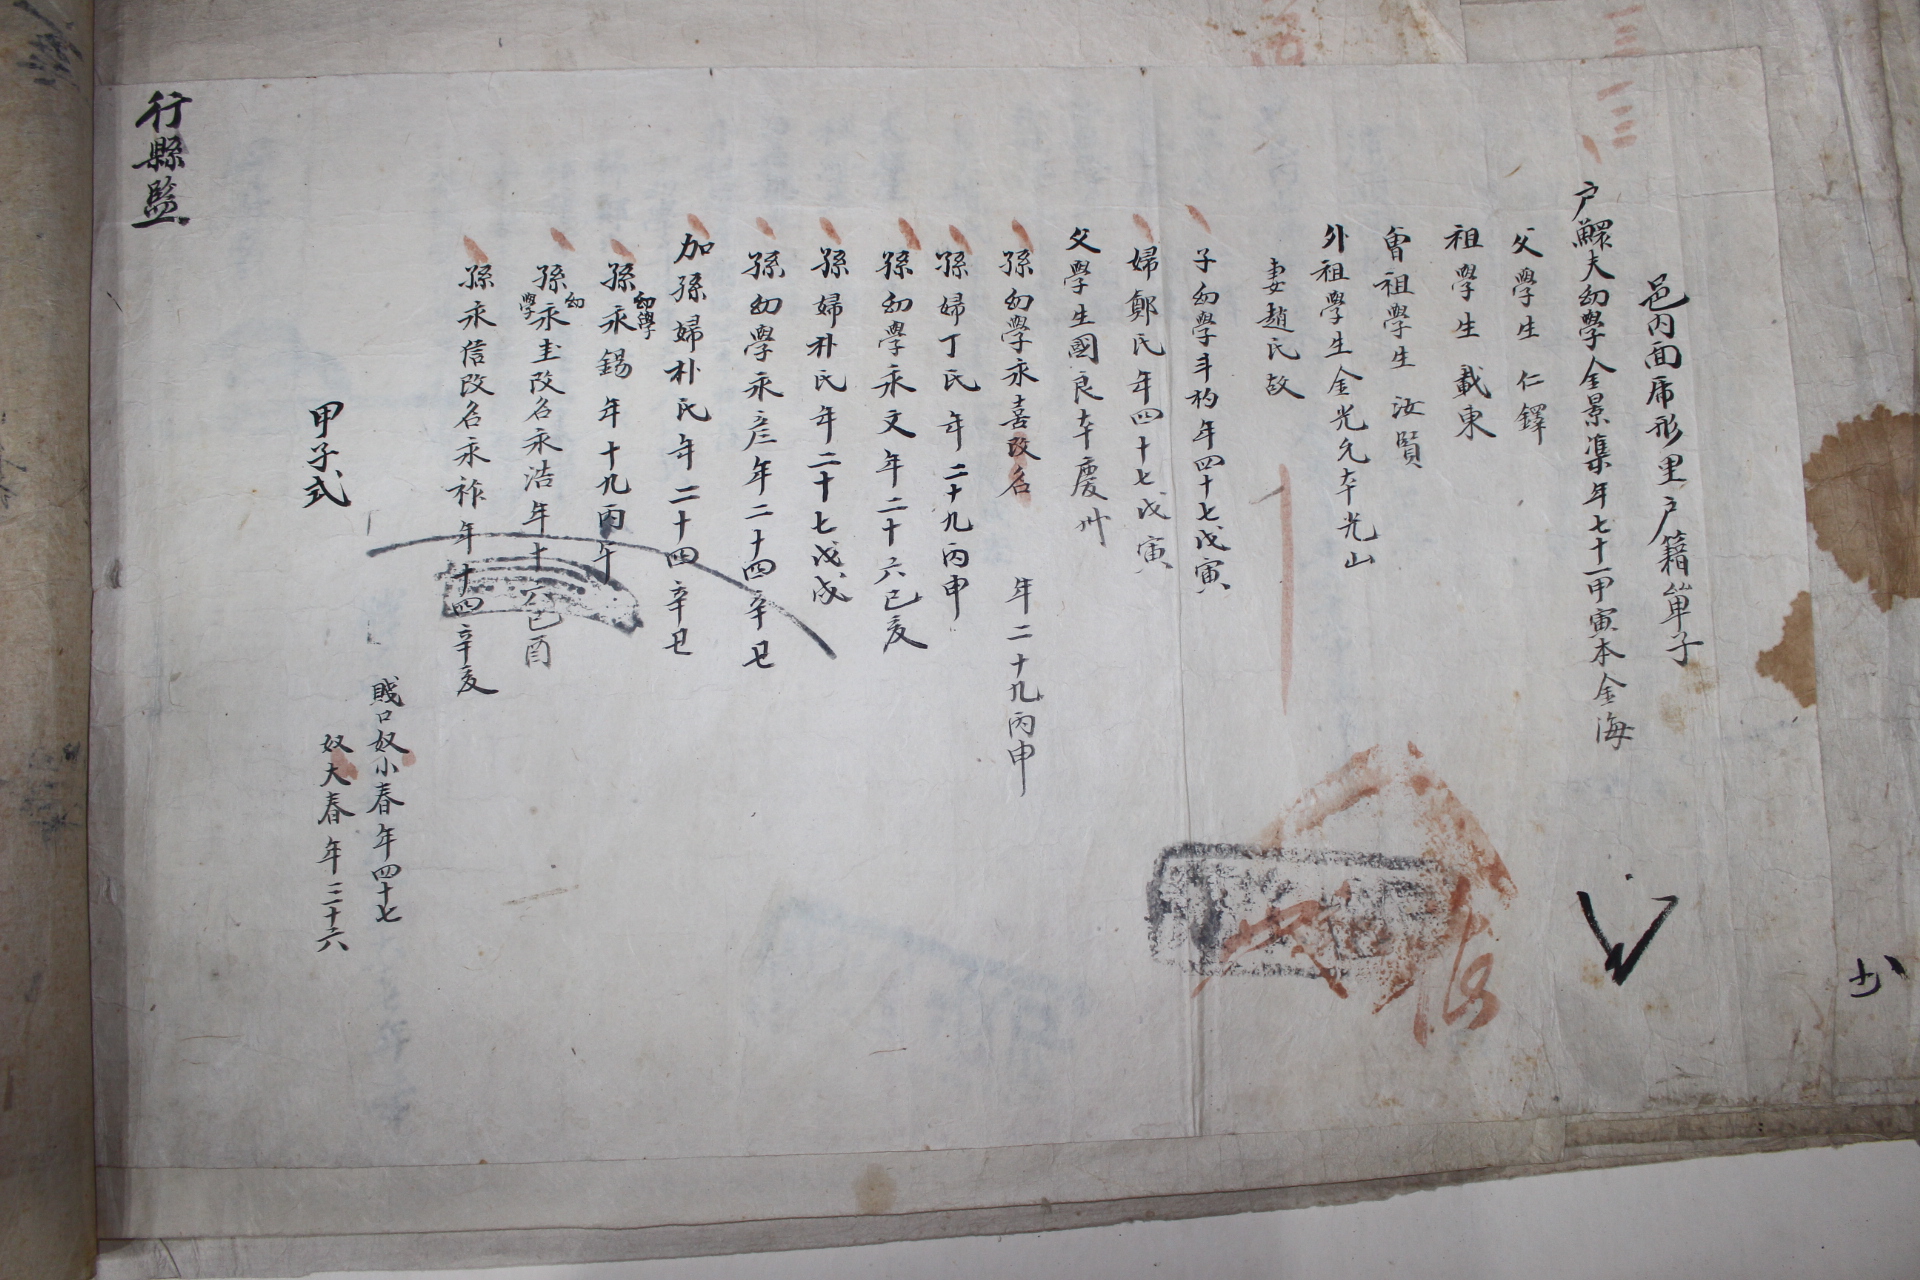 邑內面席形里戶籍單子
戶鰥夫幼學金景準年七十一甲寅本金海
父學生 仁鐸
祖學生 載東
曾祖學生 汝賢
外祖學生金光允本光山
妻趙氏故
子幼學斗杓年四十七戊寅
婦鄭氏年四十七戊寅
父學生國良本慶州
孫幼學永喜改名 年二十九丙申
孫婦丁氏年二十九丙申
孫幼學永文年二十六己亥
孫婦朴氏年二十七戊戌
孫幼學永彦年二十四辛丑
加孫婦朴氏年二十四辛丑
孫幼學永錫年十九丙午
孫幼學永圭改名永浩年十六己酉
孫永信改名永祚年十四辛亥
賤口奴小春年四十七
奴大春年三十六
甲子式
行縣監